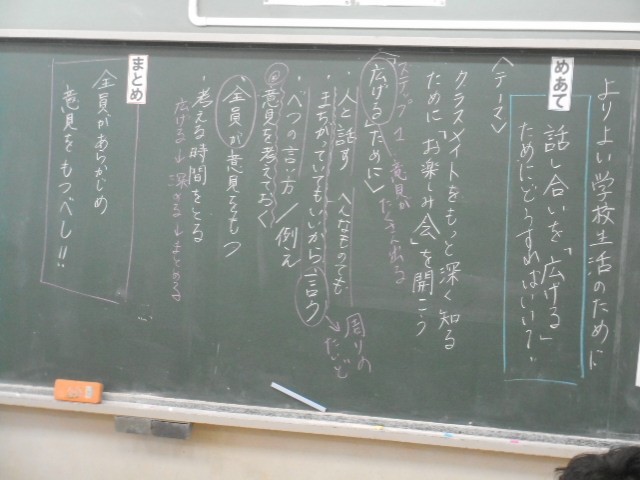 よりよい学校生活のために
めあて
話し合いを「広げる」
ためにどうすればいい？
〈テーマ〉
クラスメイトをもっと深く知る
ために「お楽しみ会」を開こう
ステップ1 意見が
たくさん出る
〈広げるために〉
・人と話す へんなものでも
まちがっていてもいいから、言う
→周りの
・べつの言い方／例え
意見を考えておく
・全員が意見をもつ
・考える時間をとる
広げる→深める→まとめる
まとめ
全員があらかじめ
意見をもつべし!!